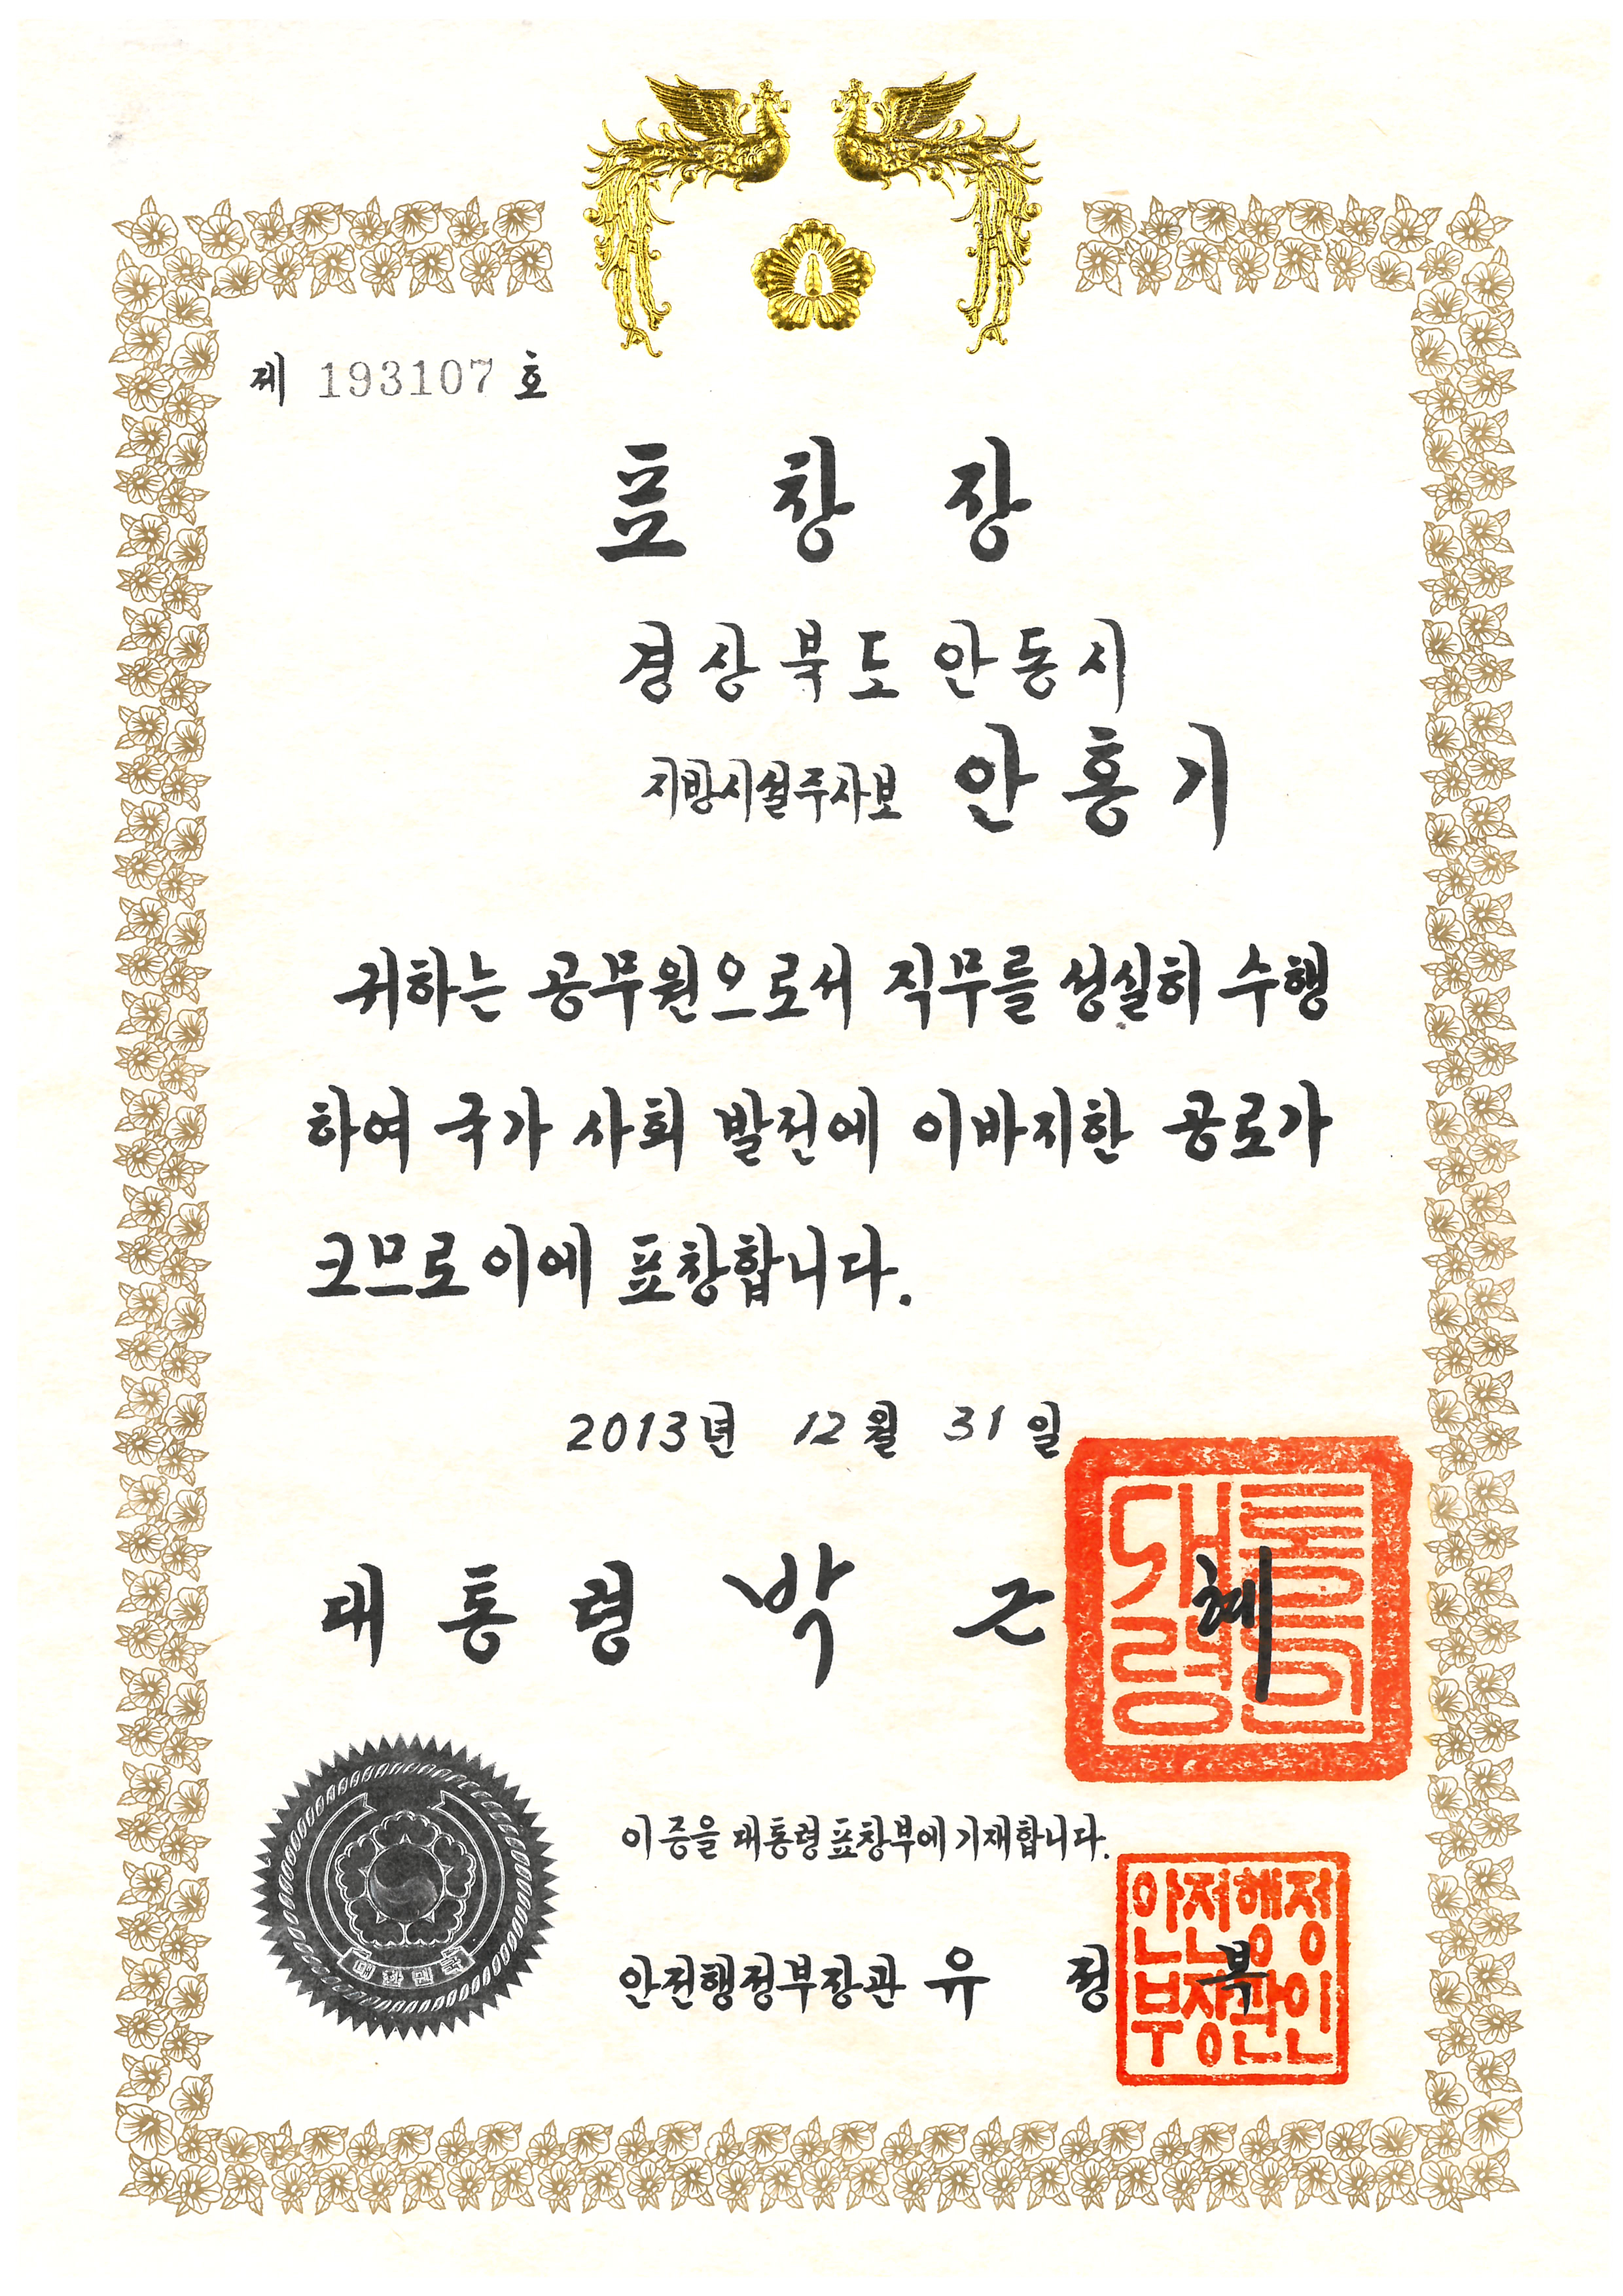 제 193107 호
표 창 장
경상북도 안동시
지방시설주사보 안 홍 기
귀하는 공무원으로서 직무를 성실히 수행
하여 국가 사회 발전에 이바지한 공로가
크므로 이에 표창합니다.
2013년 12월 31일
대 통 령 박 근 혜
대통령의인
대한민국
이 증을 대통령 표창부에 기재합니다.
안전행정부장관 유 정 복
안전행정
부장관인